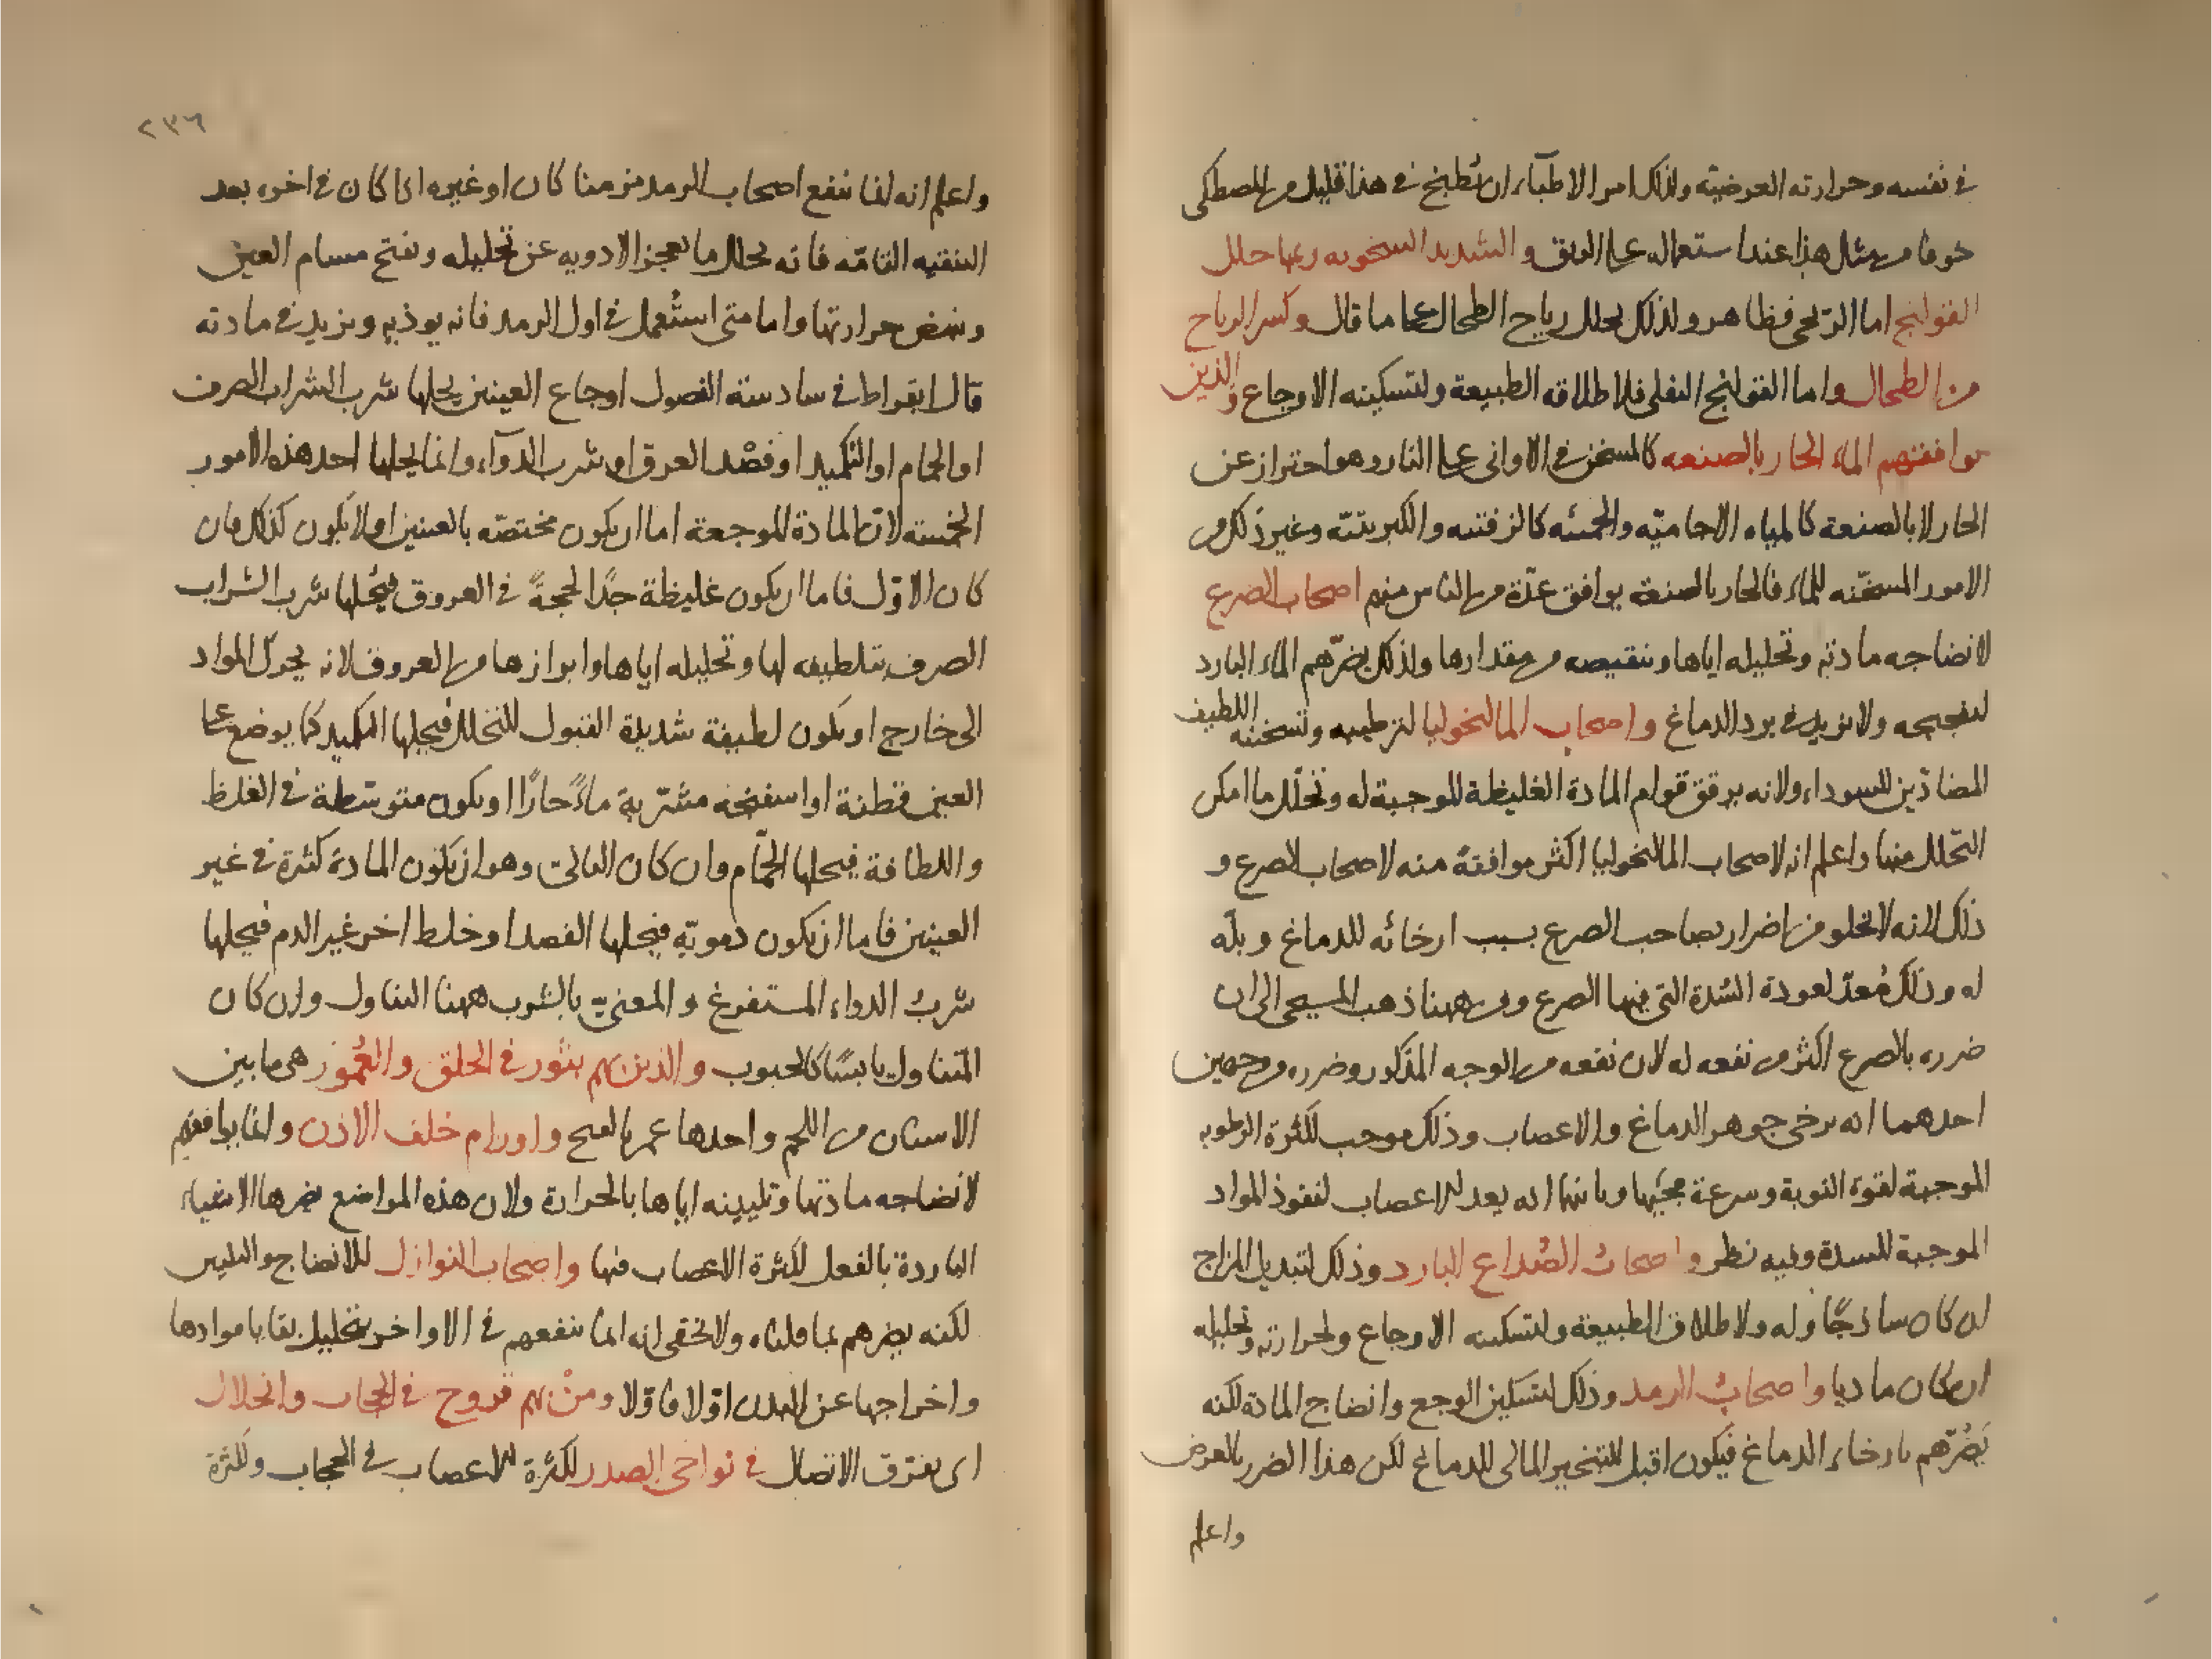 في نفسه وحرارته العرضية ولذلك امر الاطباء ان تطبخ في هذا قليل من المصطكى
خوفا من مثل هذا عند استعماله على الريق و الشديد السخونه ربما حلل
القولنج اما الريحى فظاهر ولذلك يحلل رياح الطحال على ما قال وكسر الرياح
من الطحال واما القولنج الثفلى فلاطلاقه الطبيعة ولتسكينه الاوجاع والذين
يوافقهم الماء الحار بالصنعه كالمسخن في الاوانى على النار وهو احتراز عن
الحار لا بالصنعة كالمياه الاجاميّه والحمئه كالزفتيه والكبريتيّه وغير ذلك من
الامور المسخّنه للماء فالحار بالصنعة يوافق عدّة من الناس منهم اصحاب الصرع
لانضاجه مادته وتحليله اياها وتنقيصه من مقدارها ولذلك يضرّهم الماء البارد
لتفجيجه ولانه يزيد في برد الدماغ واصحاب المالنخوليا لترطيبه وتسخينه اللطيف
المضادّين للسوداء ولانه يرقق قوام المادة الغليظة الموجبة له وتحلل ما امكن
التحلل منها واعلم انه لاصحاب المالنخوليا اكثر موافقة منه لاصحاب الصرع و
ذلك لانه لا يخلو من اضرار بصاحب الصرع بسبب ارخائه للدماغ وبلّه
له وذلك مُعدّ لعودة السّدة التى فيها الصرع ومن ههنا ذهب المسيحى الى ان
ضرره بالصرع اكثر من نفعه له لان نفعه من الوجه المذكور وضرره من وجهين
احدهما انه يرخى جوهر الدماغ والاعصاب وذلك موجب لكثرة الرطوبه
الموجبة لقوة النوبة وسرعة مجيّها وثانيهما انه يعد الاعصاب لنفوذ المواد
الموجبة للسدة وفيه نظر واصحابُ الصُداع البارد وذلك لتبديل المزاج
ان كان ساذجًا وله ولاطلاق الطبيعة ولتسكينه الاوجاع ولحرارته وتحليله
ان كان ماديا واصحابُ الرمد وذلك لتسكين الوجع وانضاج المادة لكنه
يَضُرّهم بارخاء الدماغ فيكون اقبل للتبخير المالى للدماغ لكن هذا الضرر بالعرض
واعلم
٢٣٦
واعلم انه انما ينفع اصحاب الرمد مزمنا كان او غيره اذا كان في اخره بعد
التنقيه التامّه فانه يحلل ما يعجز الادويه عن تحليله ويفتح مسام العين
وينفض حرارتها واما متى استُعمل في اول الرمد فانه يوذيه ويزيد في مادته
قال ابقراط في سادسة الفصول اوجاع العينين يحلها شرب الشراب الصرف
او الحمام او التكميد او فصْد العرق او شرب الدوآء وانما يحلها احد هذه الامور
الخمسه لان المادة الموجعة اما ان يكون مختصّه بالعينين او لا يكون كذلك فان
كان الاوّل فاما ان يكون غليظة جدًا لحجةً في العروق فيُحلها شرب الشراب
الصرف بتلطيفه لها وتحليله اياها وابرازها من العروق لانه يحرك المواد
الى خارج او يكون لطيفة شديدة القبول للتحلل فيحلها التكميد كما يوضع على
العين قطنة او اسفنجه مشتربة ماءً حارًا او يكون متوسّطة في الغلظ
واللطافة فيحلها الحمّام وان كان الثانى وهو ان يكون المادة كثرة في غير
العينين فاما ان يكون دمويّه فيحلها الفصد او خلط اخر غير الدم فيحلها
شربُ الدواء المستفرغ و المعنىّ بالشرب ههنا التناول وان كان
المتناول يابسًا كالحبوب والذين بهم بثور في الحلق والعُمور هى ما بين
الاسنان من اللحم واحدها عمر بالفتح واورام خلف الاذن وانما يوافقهم
لانضاجه مادتها وتليينه اياها بالحرارة ولان هذه المواضع يضرها الاشياء
الباردة بالفعل لكثرة الاعصاب فيها واصحاب النوازل للانضاج والتليين
لكنه يضرهم بما قلناه ولا يخفى انه انما ينفعهم في الاواخر بتحليل بقايا موادها
واخراجها عن البدن اوّلا فاوّلا ومنْ بهم قروح في الحجاب وانحلال
اى بفترق الاتصال في نواحى الصدر لكثرة الاعصاب في الحجاب ولكثرة